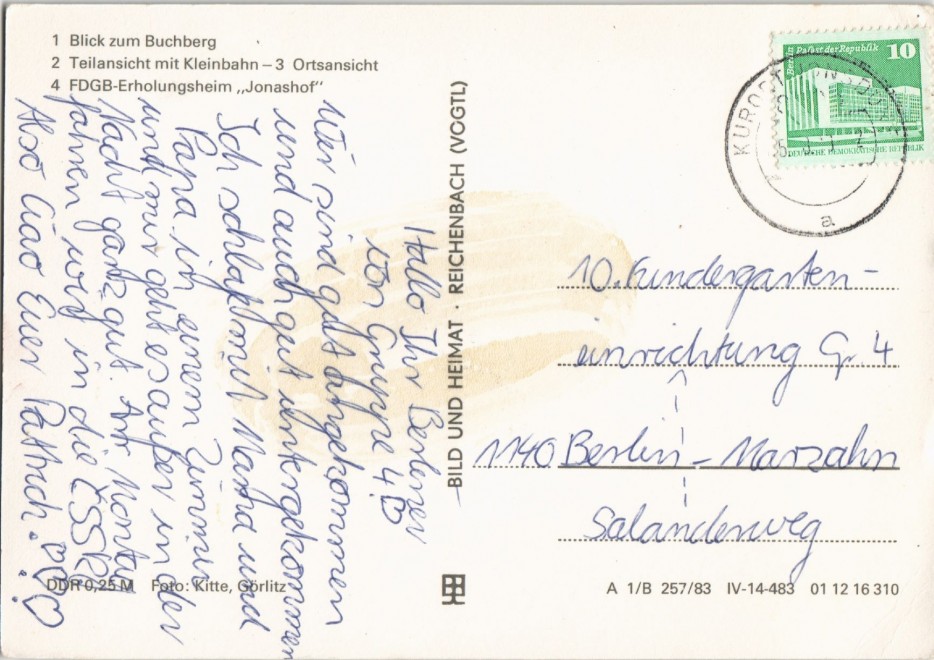 1 Blick zum Buchberg
2 Teilansicht mit Kleinbahn – 3 Ortsansicht
4 FDGB-Erholungsheim „Jonashof“
Hallo Ihr Berliner
von Gruppe 4!
Wir sind gut angekommen
und auch gut untergekommen
Ich schlaf mit Mama und
Papa in einem Zimmer
und mir geht es außer in der
Nacht ganz gut. Am Montag
fahren wir in die ČSSR.
Also Ciao Euer Patrick.
DDR 0,25 M Foto: Kitte, Görlitz
BILD UND HEIMAT · REICHENBACH (VOGTL)
Berlin Palast der Republik 10
DEUTSCHE DEMOKRATISCHE REPUBLIK
KURORT JONSDORF
a
10. Kindergarten-
einrichtung Gr. 4
1140 Berlin - Marzahn
Salanderweg
A 1/B 257/83 IV-14-483 01 12 16 310